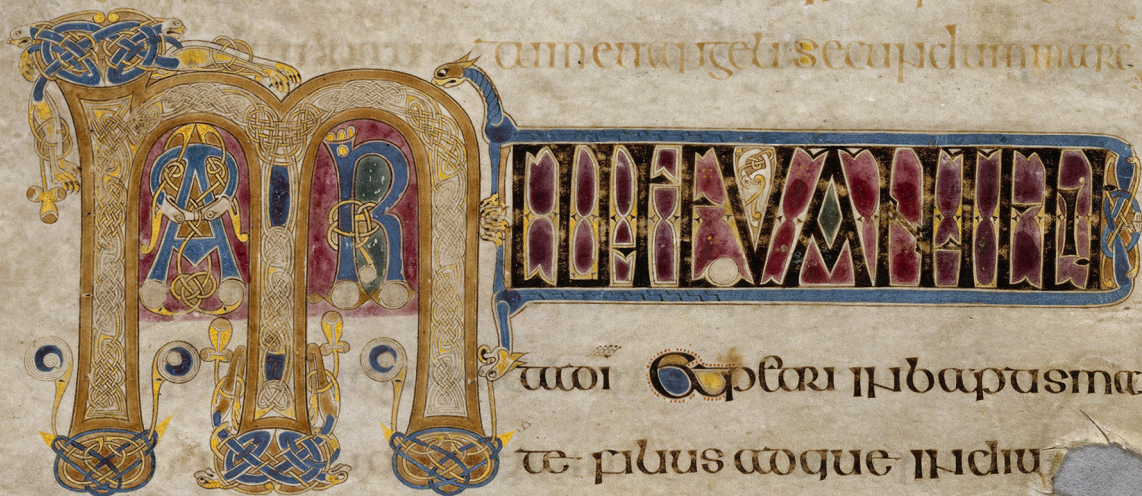 euangelii secundum marc
MARCUS EVANGELIS
ta di et petri in baptisma
te filius atque in diu